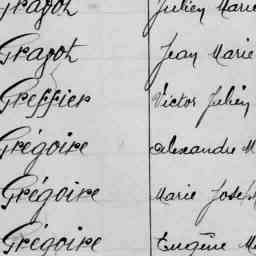 Gragoh Julien Marie
Gragoh Jean Marie
Greffier Victor Julien
Grégoire Alexandre M
Grégoire Marie Joseph
Grégoire Eugène M